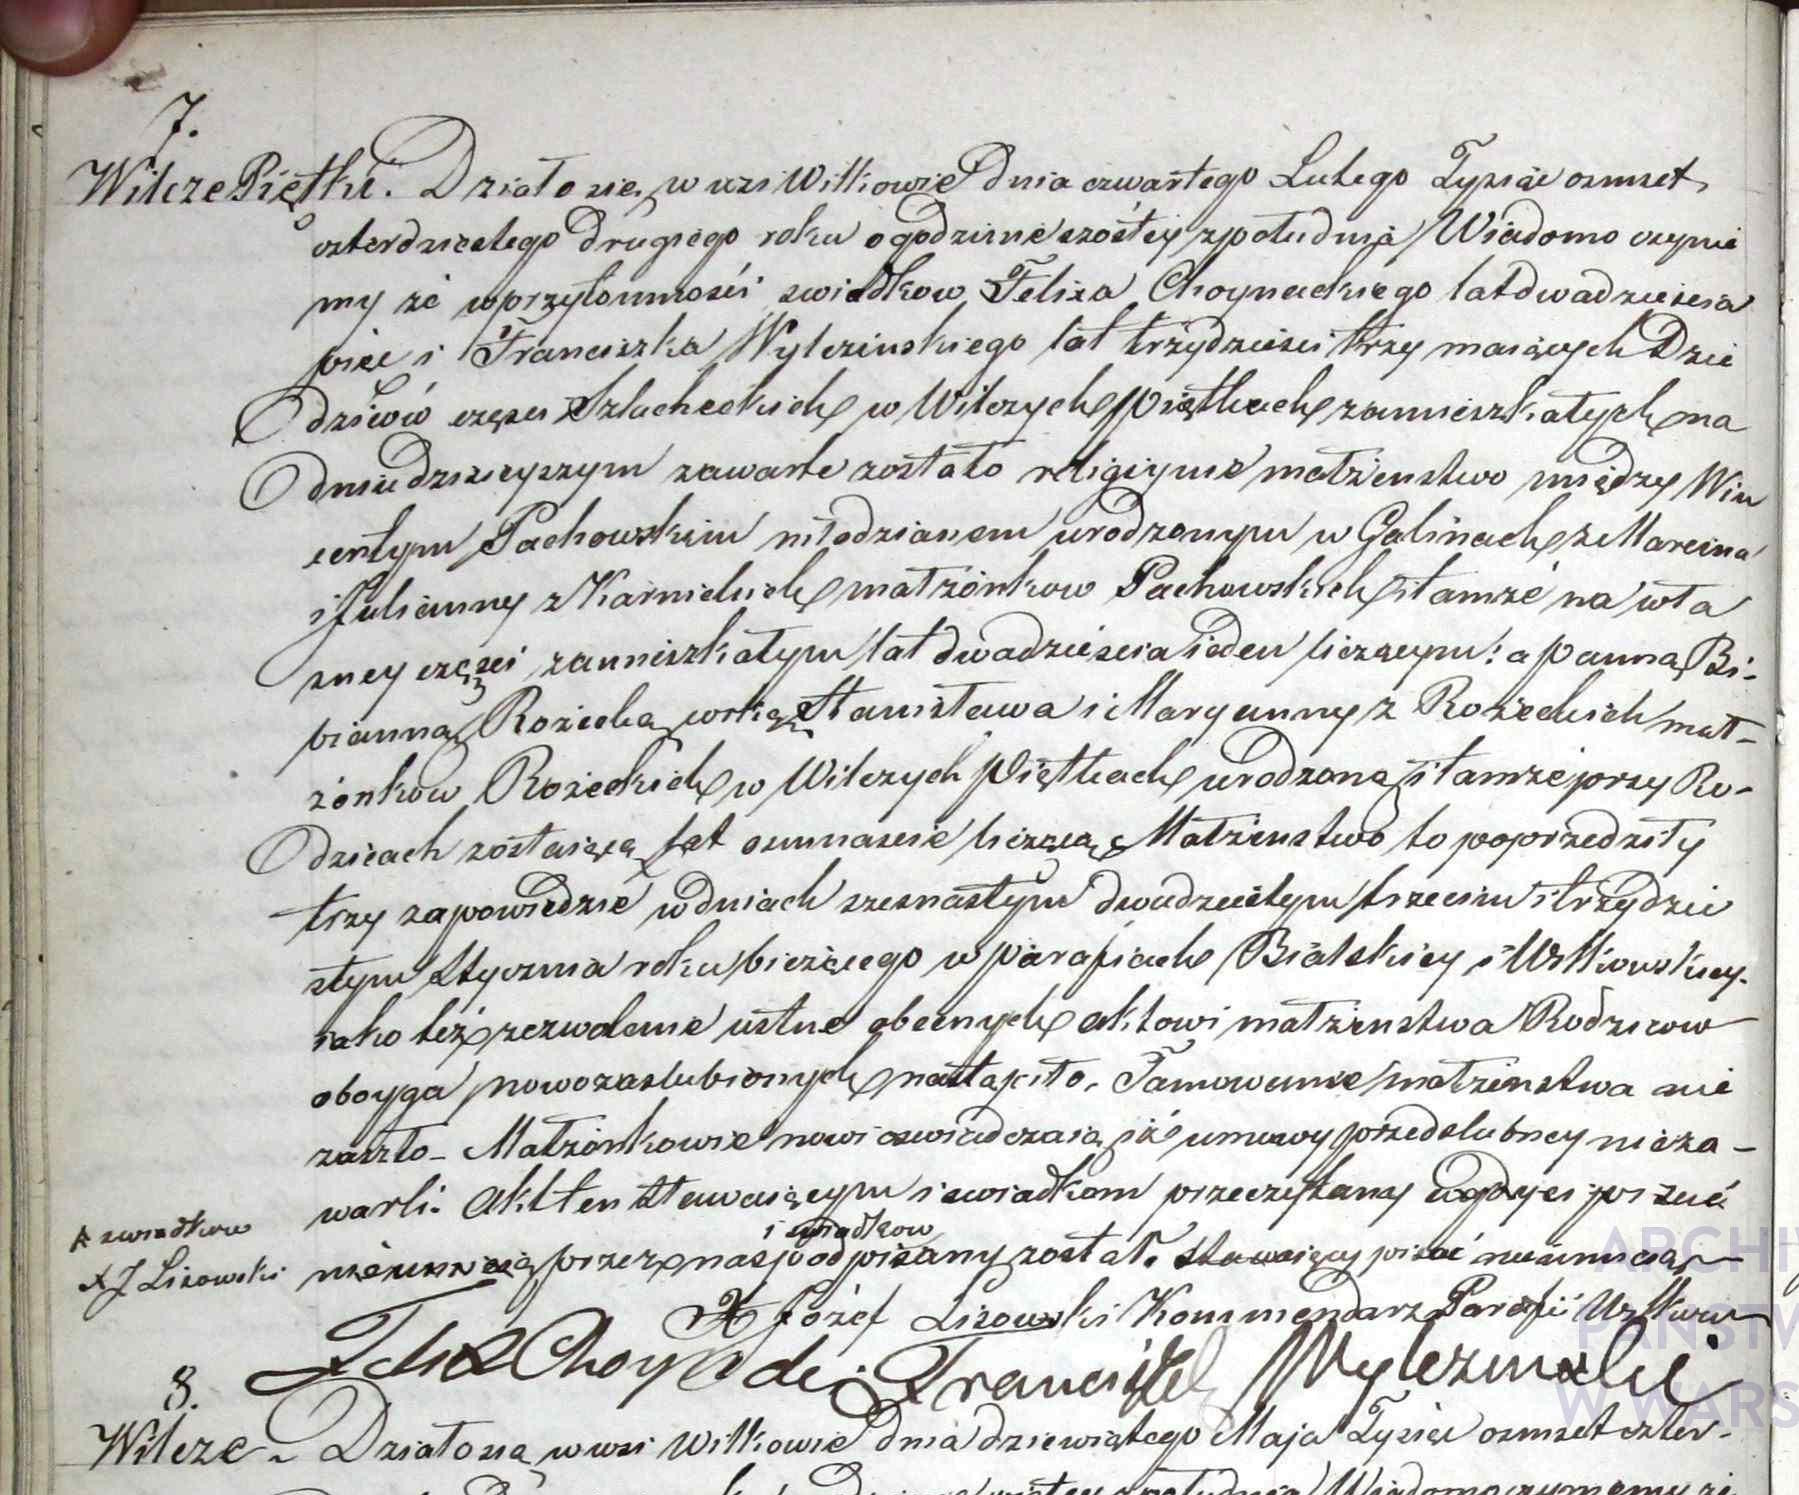 7.
Wilcze Piętki. Działo się w wsi Wilkowie dnia czwartego Lutego Tysiąc osmset
czterdziestego drugiego roku o godzinie szóstey z południa Wiadomo czynie
my że w przytomności swiadkow Felixa Choynackiego lat dwadziescia
pięc i Franciszka Wylezinskiego lat trzydziesci trzy maiących Dzie
dziców częsci Szlacheckich w Wilczych Piętkach zamieszkałych na
dniu dzisieyszym zawarte zostało religiyne małżenstwo między Win
centym Pachowskim młodzianem urodzonym w Galinach z Marcina
i Julianny z Karnickich małżonkow Pachowskich i tamże na wła
sney częsci zamieszkałym lat dwadziescia ieden liczącym: a panną Bi-
bianną Rozicką córką Stanisława i Maryanny z Rozickich mał-
żonkow Rozickich w Wilczych Piętkach urodzoną i tamże przy Ro-
dzicach zostaiącą lat osmnascie liczącą Małżenstwo to poprzedziły
trzy zapowiedzie w dniach szesnastym dwudziestym trzecim i trzydzie
stym Stycznia roku bieżącego w parafiach Bialskiey i Wilkowskiey.
iako też zezwolenie ustne obecnych aktowi małżenstwa Rodzicow
oboyga nowozaslubionych nastąpiło. Tamowanie małżenstwa nie
zaszło – Małżonkowie nowi oswiadczaią iż umowy przedslubney nieza-
warli. Akt ten stawaiącym i swiadkom przeczytany
i swiadkow
przez nas podpisany został. Stawaiący pisać nieumieią
* swiadkow
X J Lisowski
X Józef Lisowski Kommendarz Parafii Wilkow
Felix Choynacki Franciszek Wylezinski
8.
Wilcze – Działo się w wsi Wilkowie dnia dziewiątego Maja Tysiąc osmset czter-